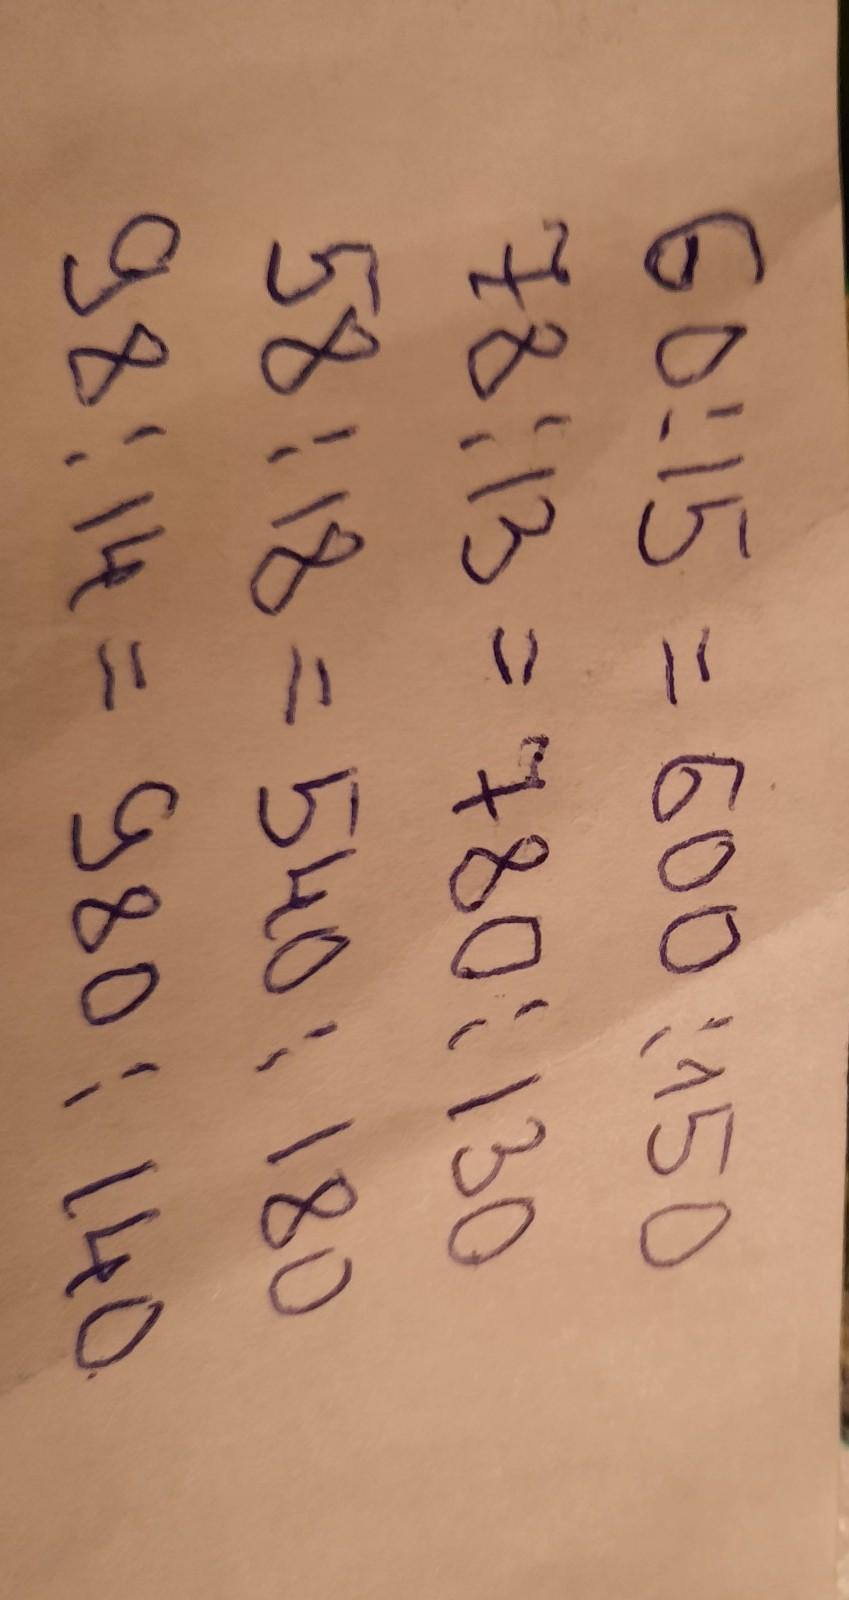 60:15 = 600:150
78:13 = 780:130
58:18 = 540:180
98:14 = 980:140